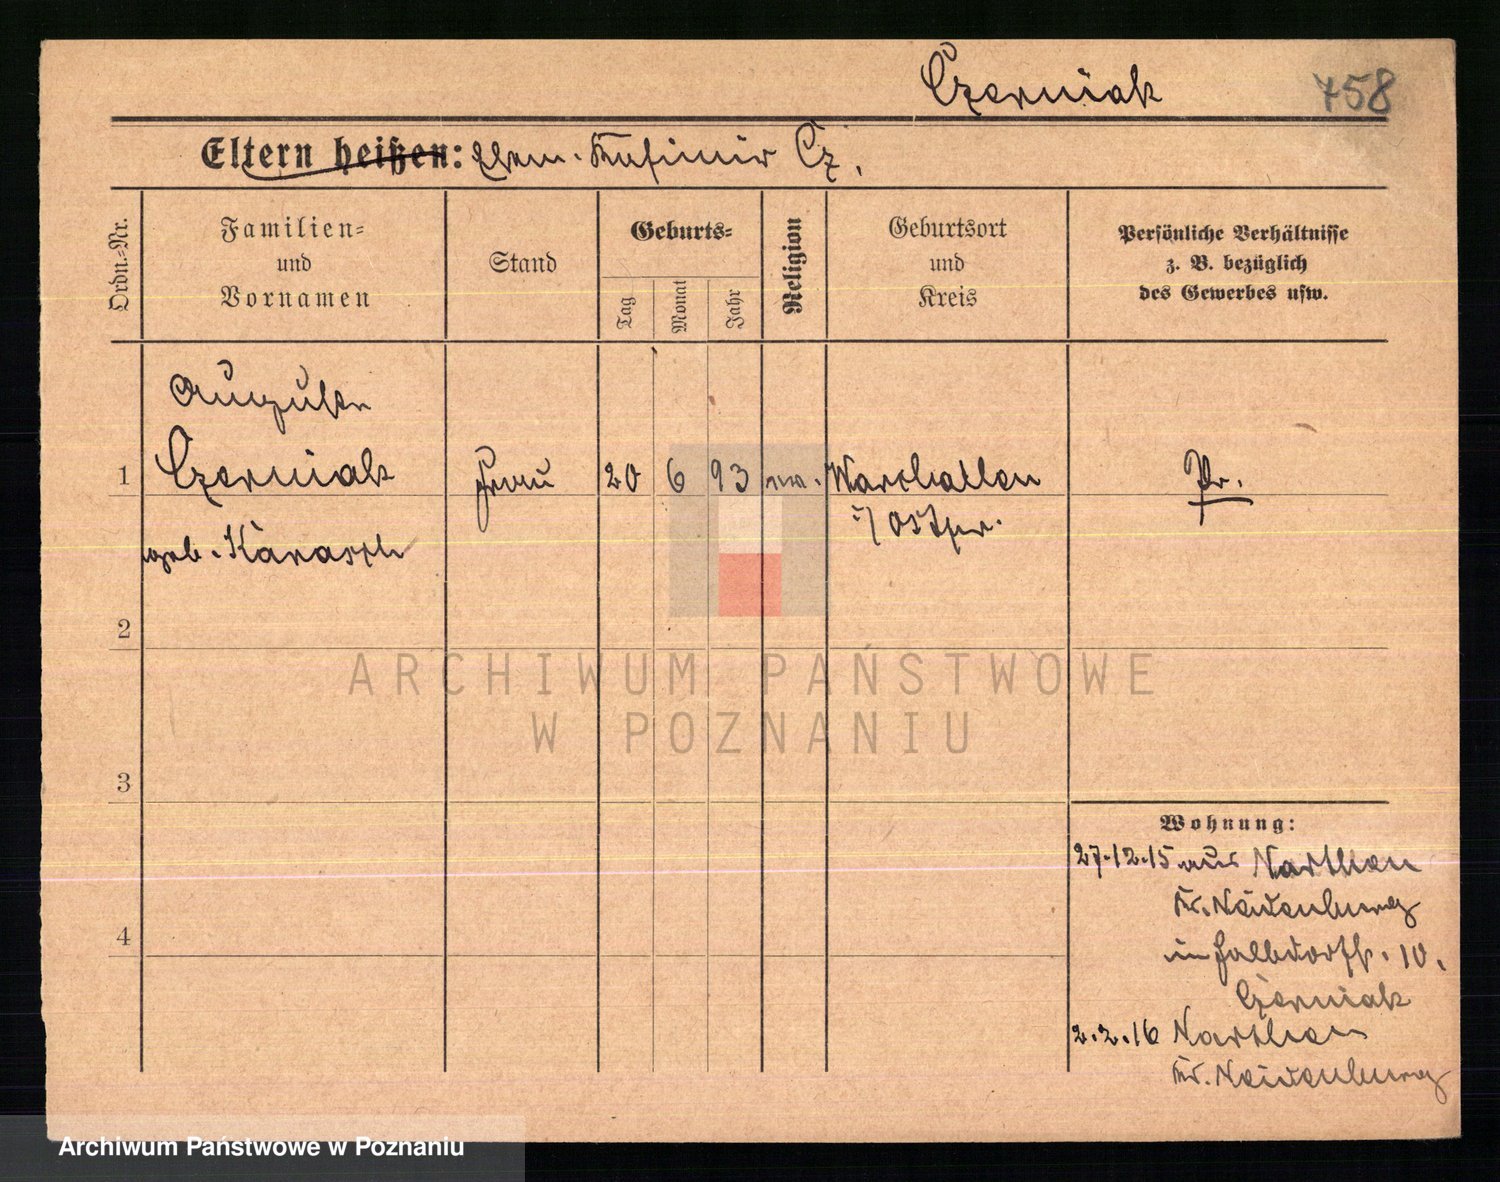 Czerniak 758
Eltern heißen: Ehem. Kasimir Cz.
Ordn.-Nr.
Familien=
und
Vornamen
Stand
Geburts=
Tag
Monat
Jahr
Religion
Geburtsort
und
Kreis
Persönliche Verhältnisse
z. B. bezüglich
des Gewerbes usw.
Auguste
1 Czerniak Frau 20 6 93 Pr.
geb. i/Ostpr.
2
3
4
Wohnung:
27.12.15 aus Narthen
Kr. Neidenburg
in 10.
Czerniak
2.2.16 Narthen
Kr. Neidenburg
ARCHIWUM PAŃSTWOWE
W POZNANIU
Archiwum Państwowe w Poznaniu